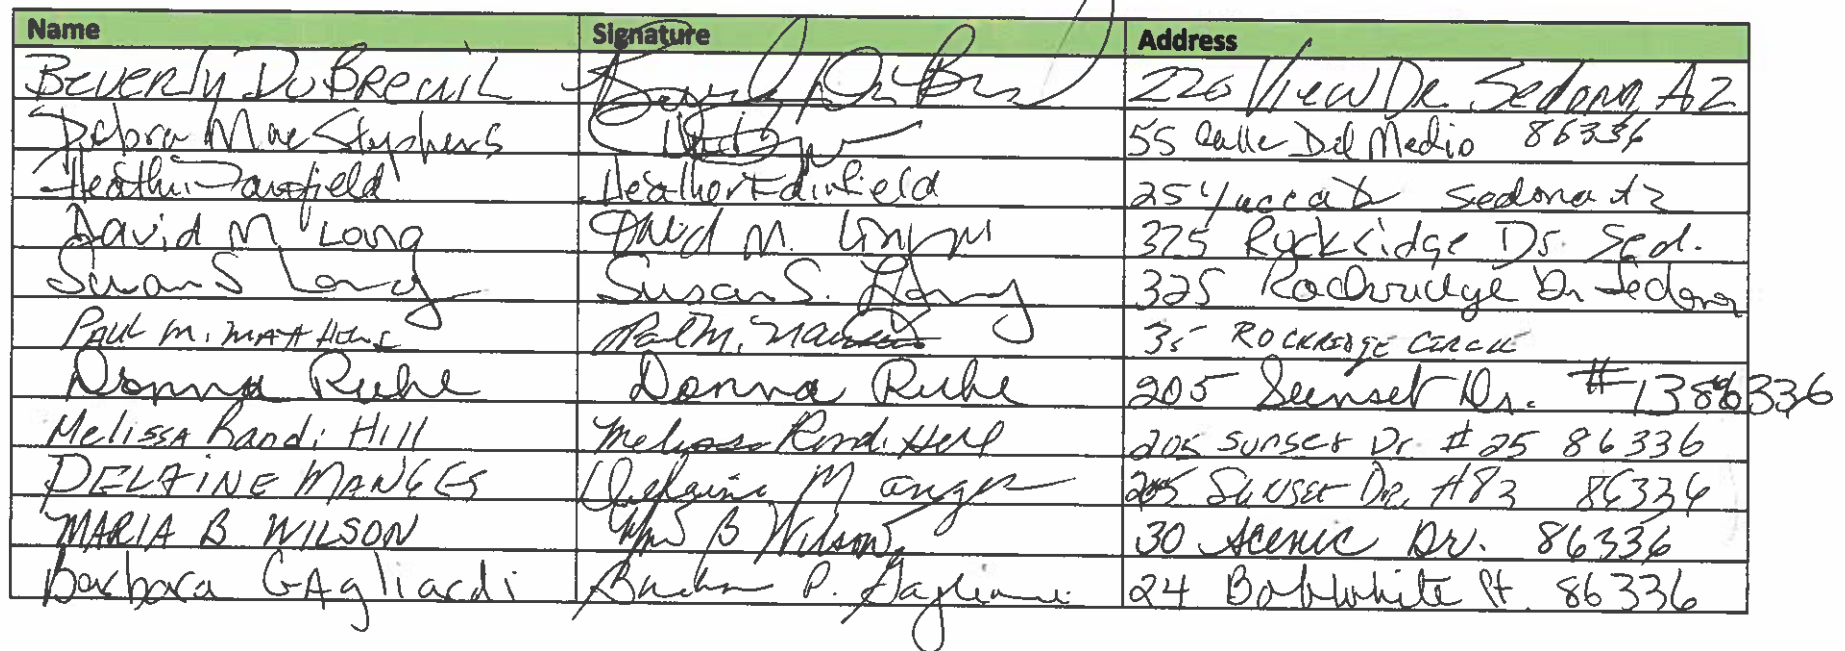 Name Signature Address
Beverly DuBreuil 226 View Dr. Sedona AZ
Debra Mae Stephens 55 Calle Del Medio 86336
Heather Heather 25 Yucca Sedona Az
David M. Long David M. 325 Rockridge Dr. Sed.
Susan S Long Susan S. Long 325 Rockridge Dr Sedona
Paul M. Matthews Paul M. 35 Rockridge Circle
Donna Ruhe Donna Ruhe 205 Sunset Dr. #13 86336
Melissa Randi Hill Melissa Randi Hill 205 Sunset Dr. #25 86336
DELAINE MANGES Delaine Manges 205 Sunset Dr. #83 86336
MARIA B WILSON B Wilson 30 Scenic Dr. 86336
Barbara GAgliardi P. 24 Bobwhite 86336